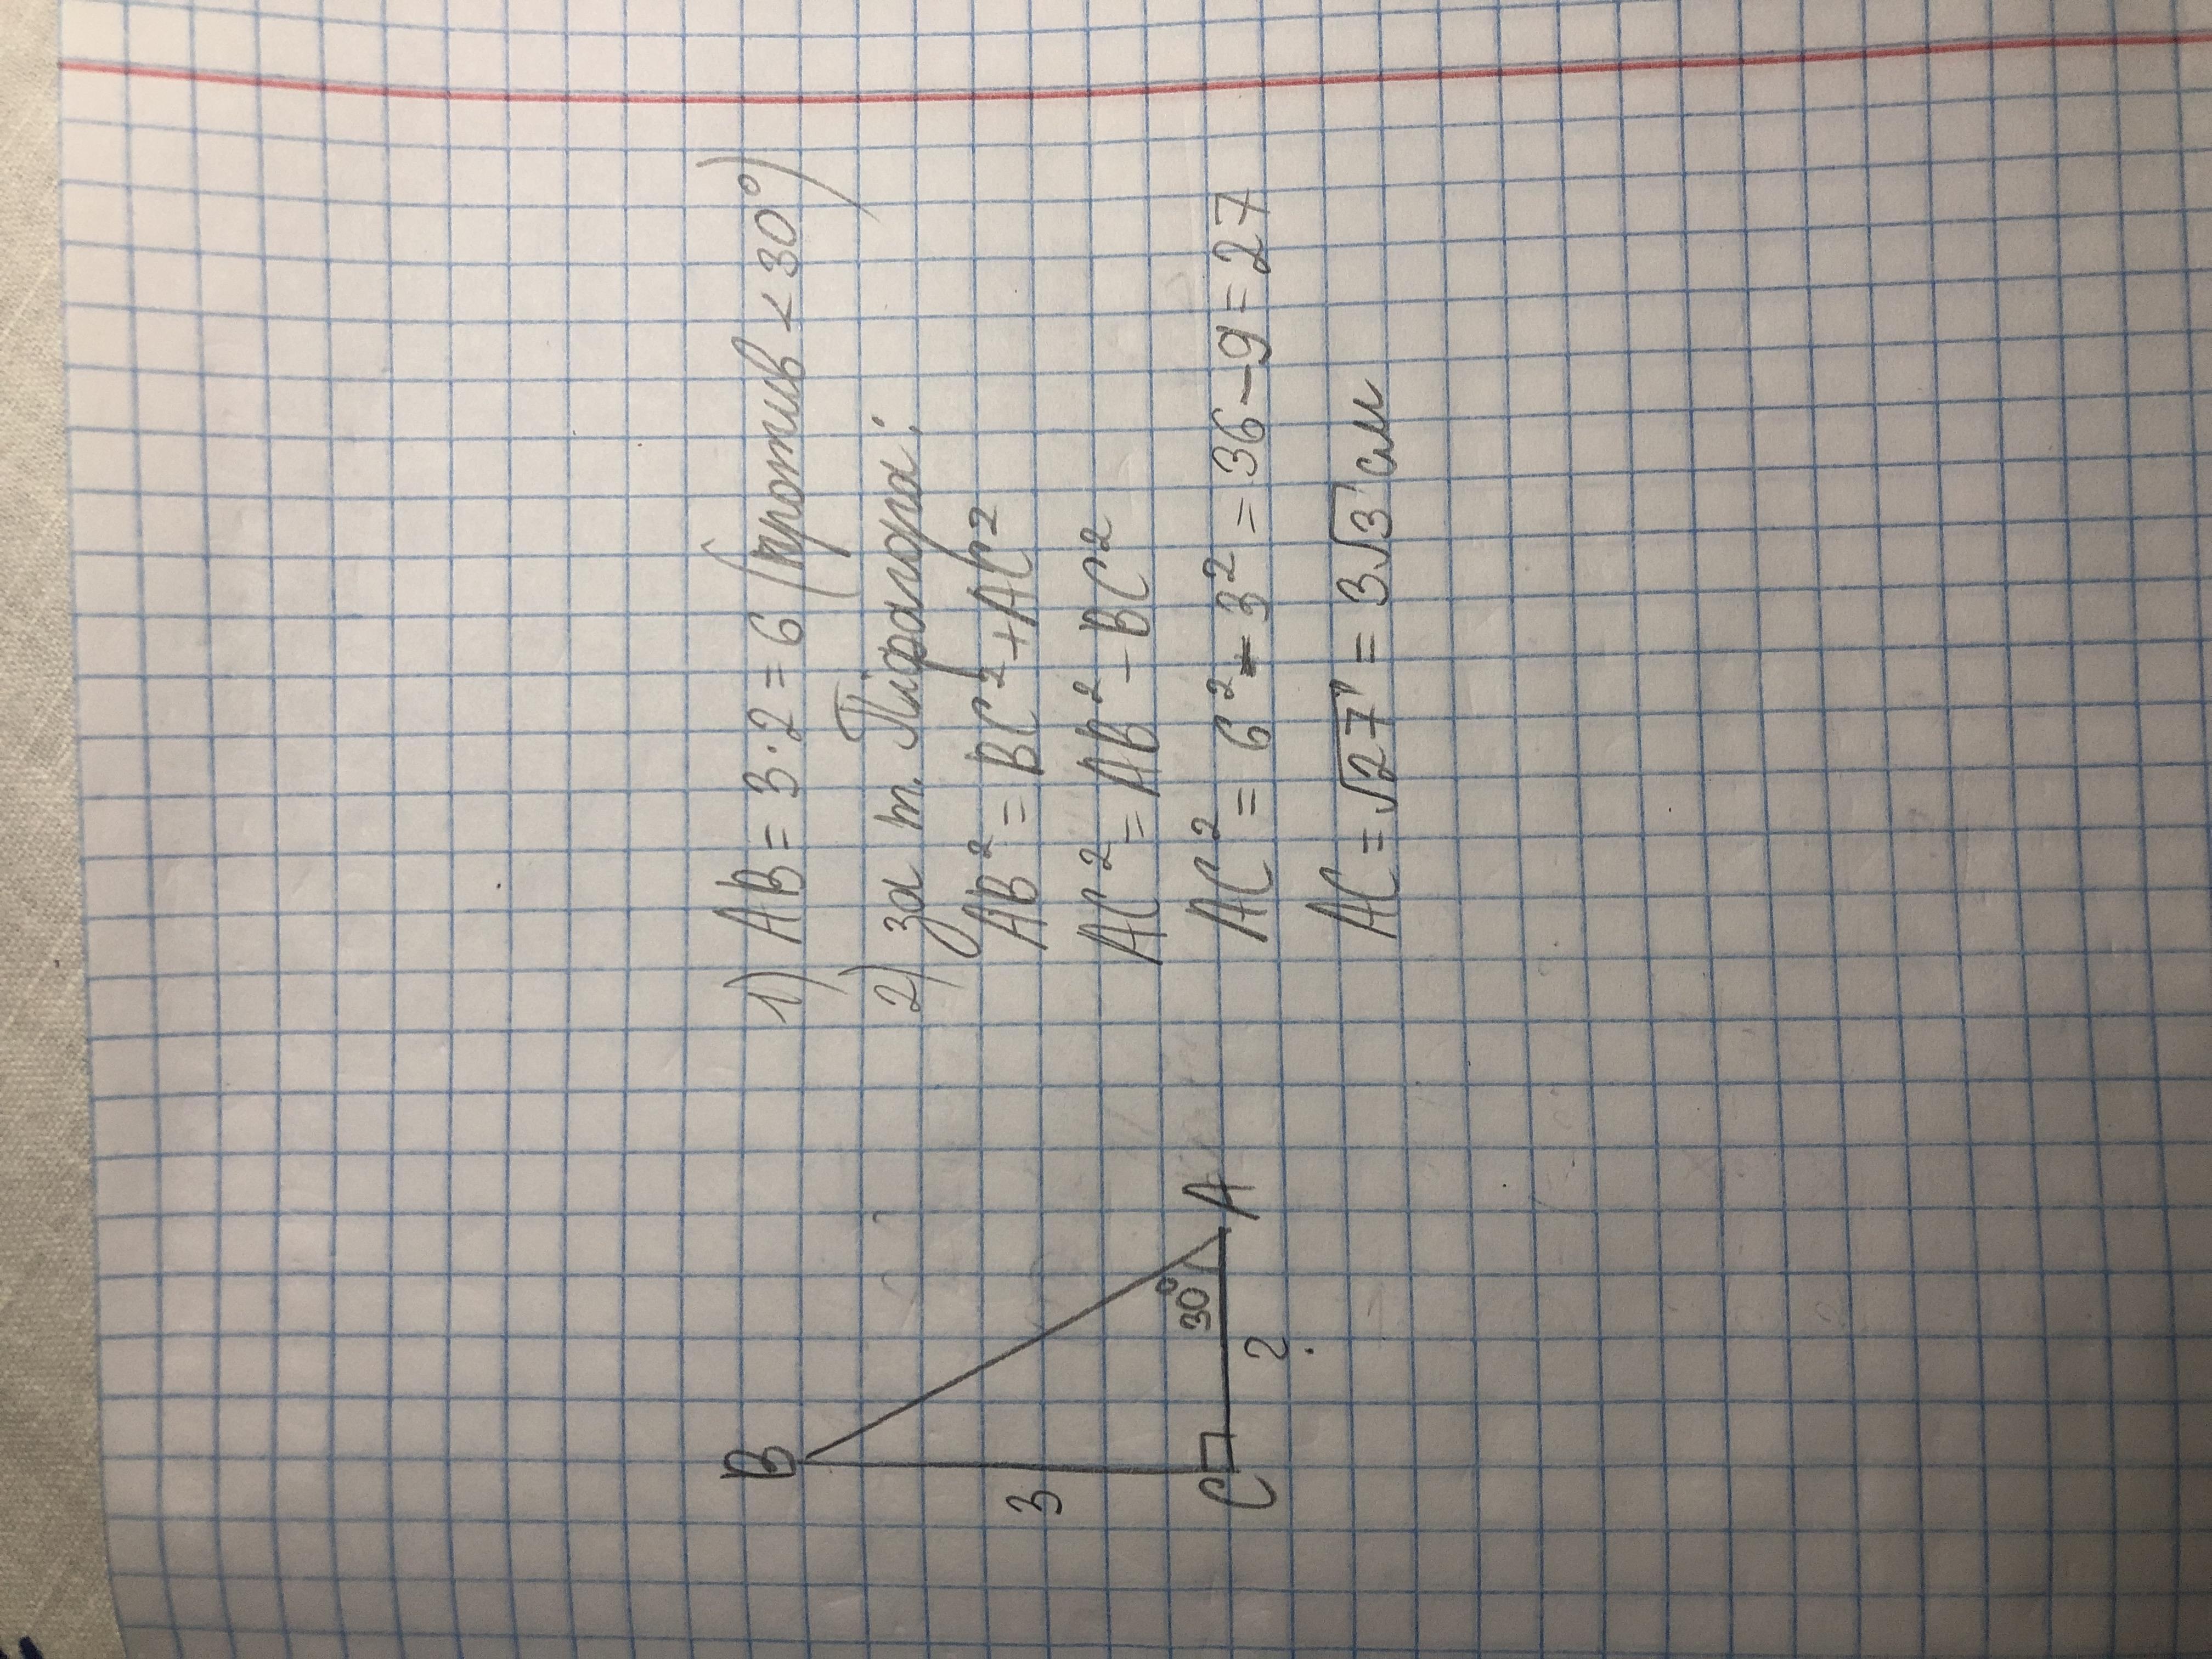 B
3
C
30°
A
?
1) AB = 3·2 = 6 (против < 30°)
2) за т. Піфагора:
AB² = BC² + AC²
AC² = AB² - BC²
AC² = 6² - 3² = 36 - 9 = 27
AC = √27 = 3√3 см